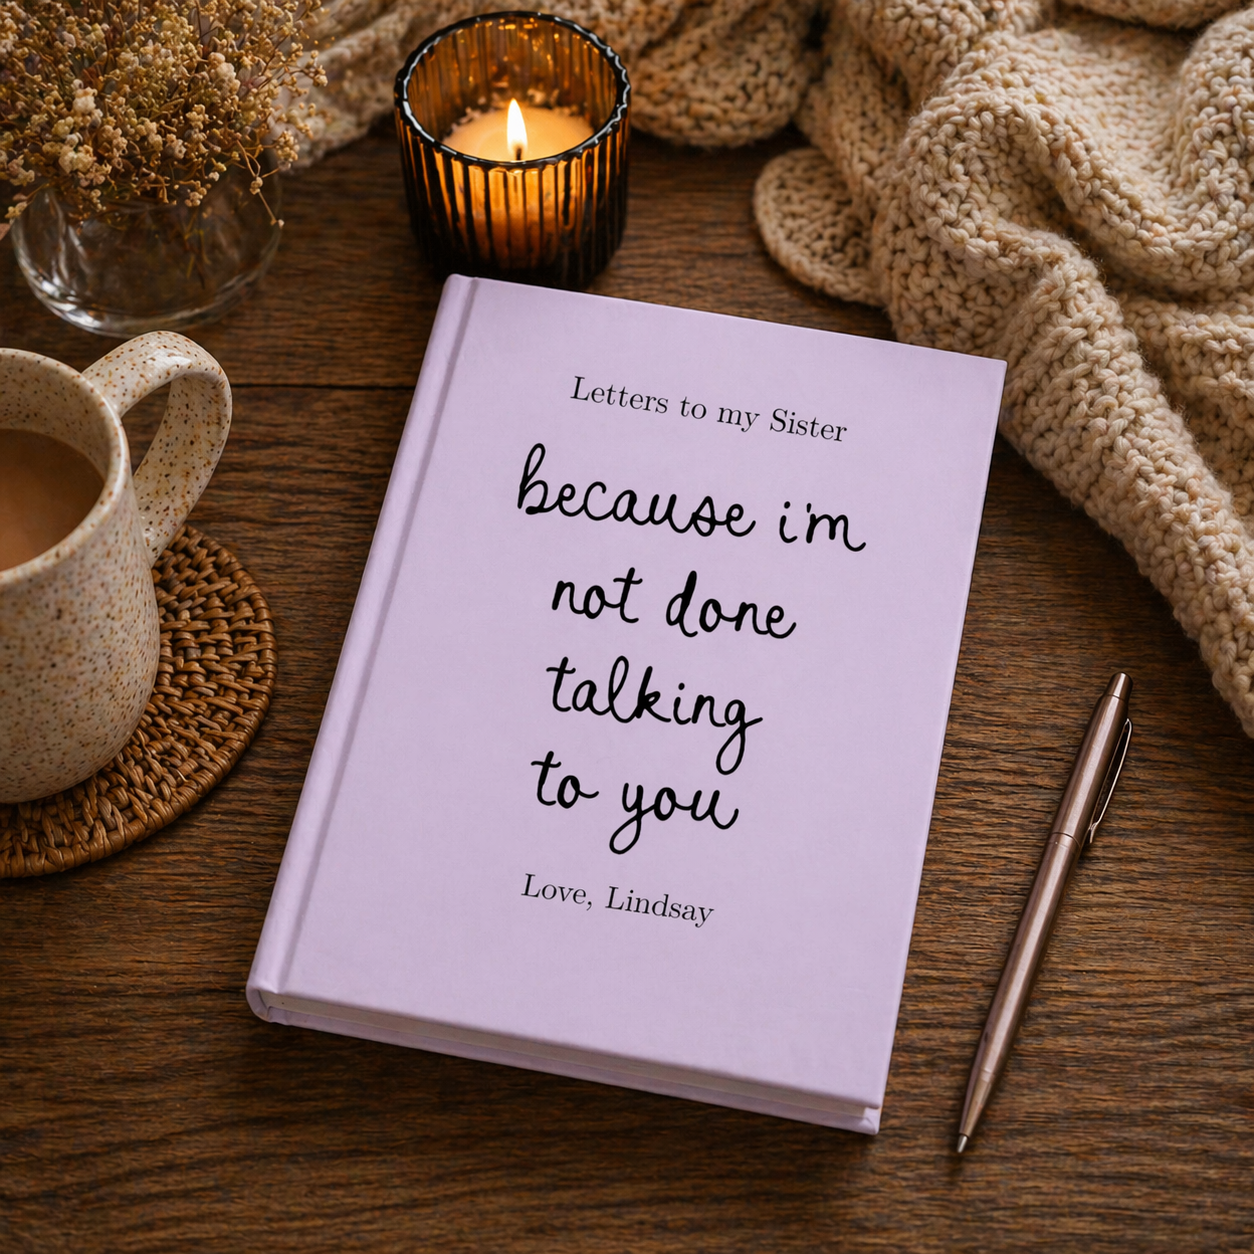 Letters to my Sister
because i'm
not done
talking
to you
Love, Lindsay